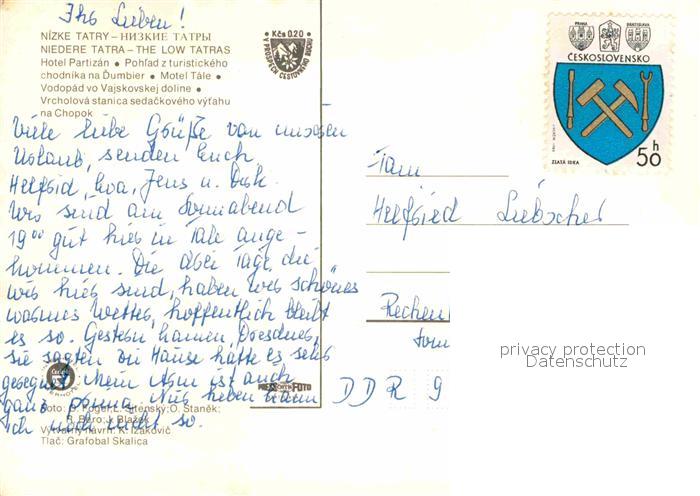 Ihr Lieben!
NÍZKE TATRY – НИЗКИЕ ТАТРЫ
NIEDERE TATRA – THE LOW TATRAS
Hotel Partizán • Pohľad z turistického
chodníka na Ďumbier • Motel Tále •
Vodopád vo Vajskovskej doline •
Vrcholová stanica sedačkového výťahu
na Chopok
Kčs 0.20
V PROSPECH CESTOVNÉHO RUCHU
PRAHA BRATISLAVA
ČESKOSLOVENSKO
ZLATÁ IDKA
50 h
Viele liebe Grüße von unserem
Urlaub, senden Euch
Helfried, Eva, Jens u. Dirk.
Wir sind am Sonnabend
19⁰⁰ gut hier in Tale ange-
kommen. Die drei Tage, die
wir hier sind, haben wir schönes
warmes Wetter, hoffentlich bleibt
es so. Gestern kamen Dresdner,
sie sagten zu Hause hätte es sehr
geregnet. Mein Arm ist auch
ganz prima. Nur heben kann
ich noch nicht so.
Fam
Helfried Liebscher
Rechen
DDR 9
privacy protection
Datenschutz
PRESSFOTO
Tlač: Grafobal Skalica